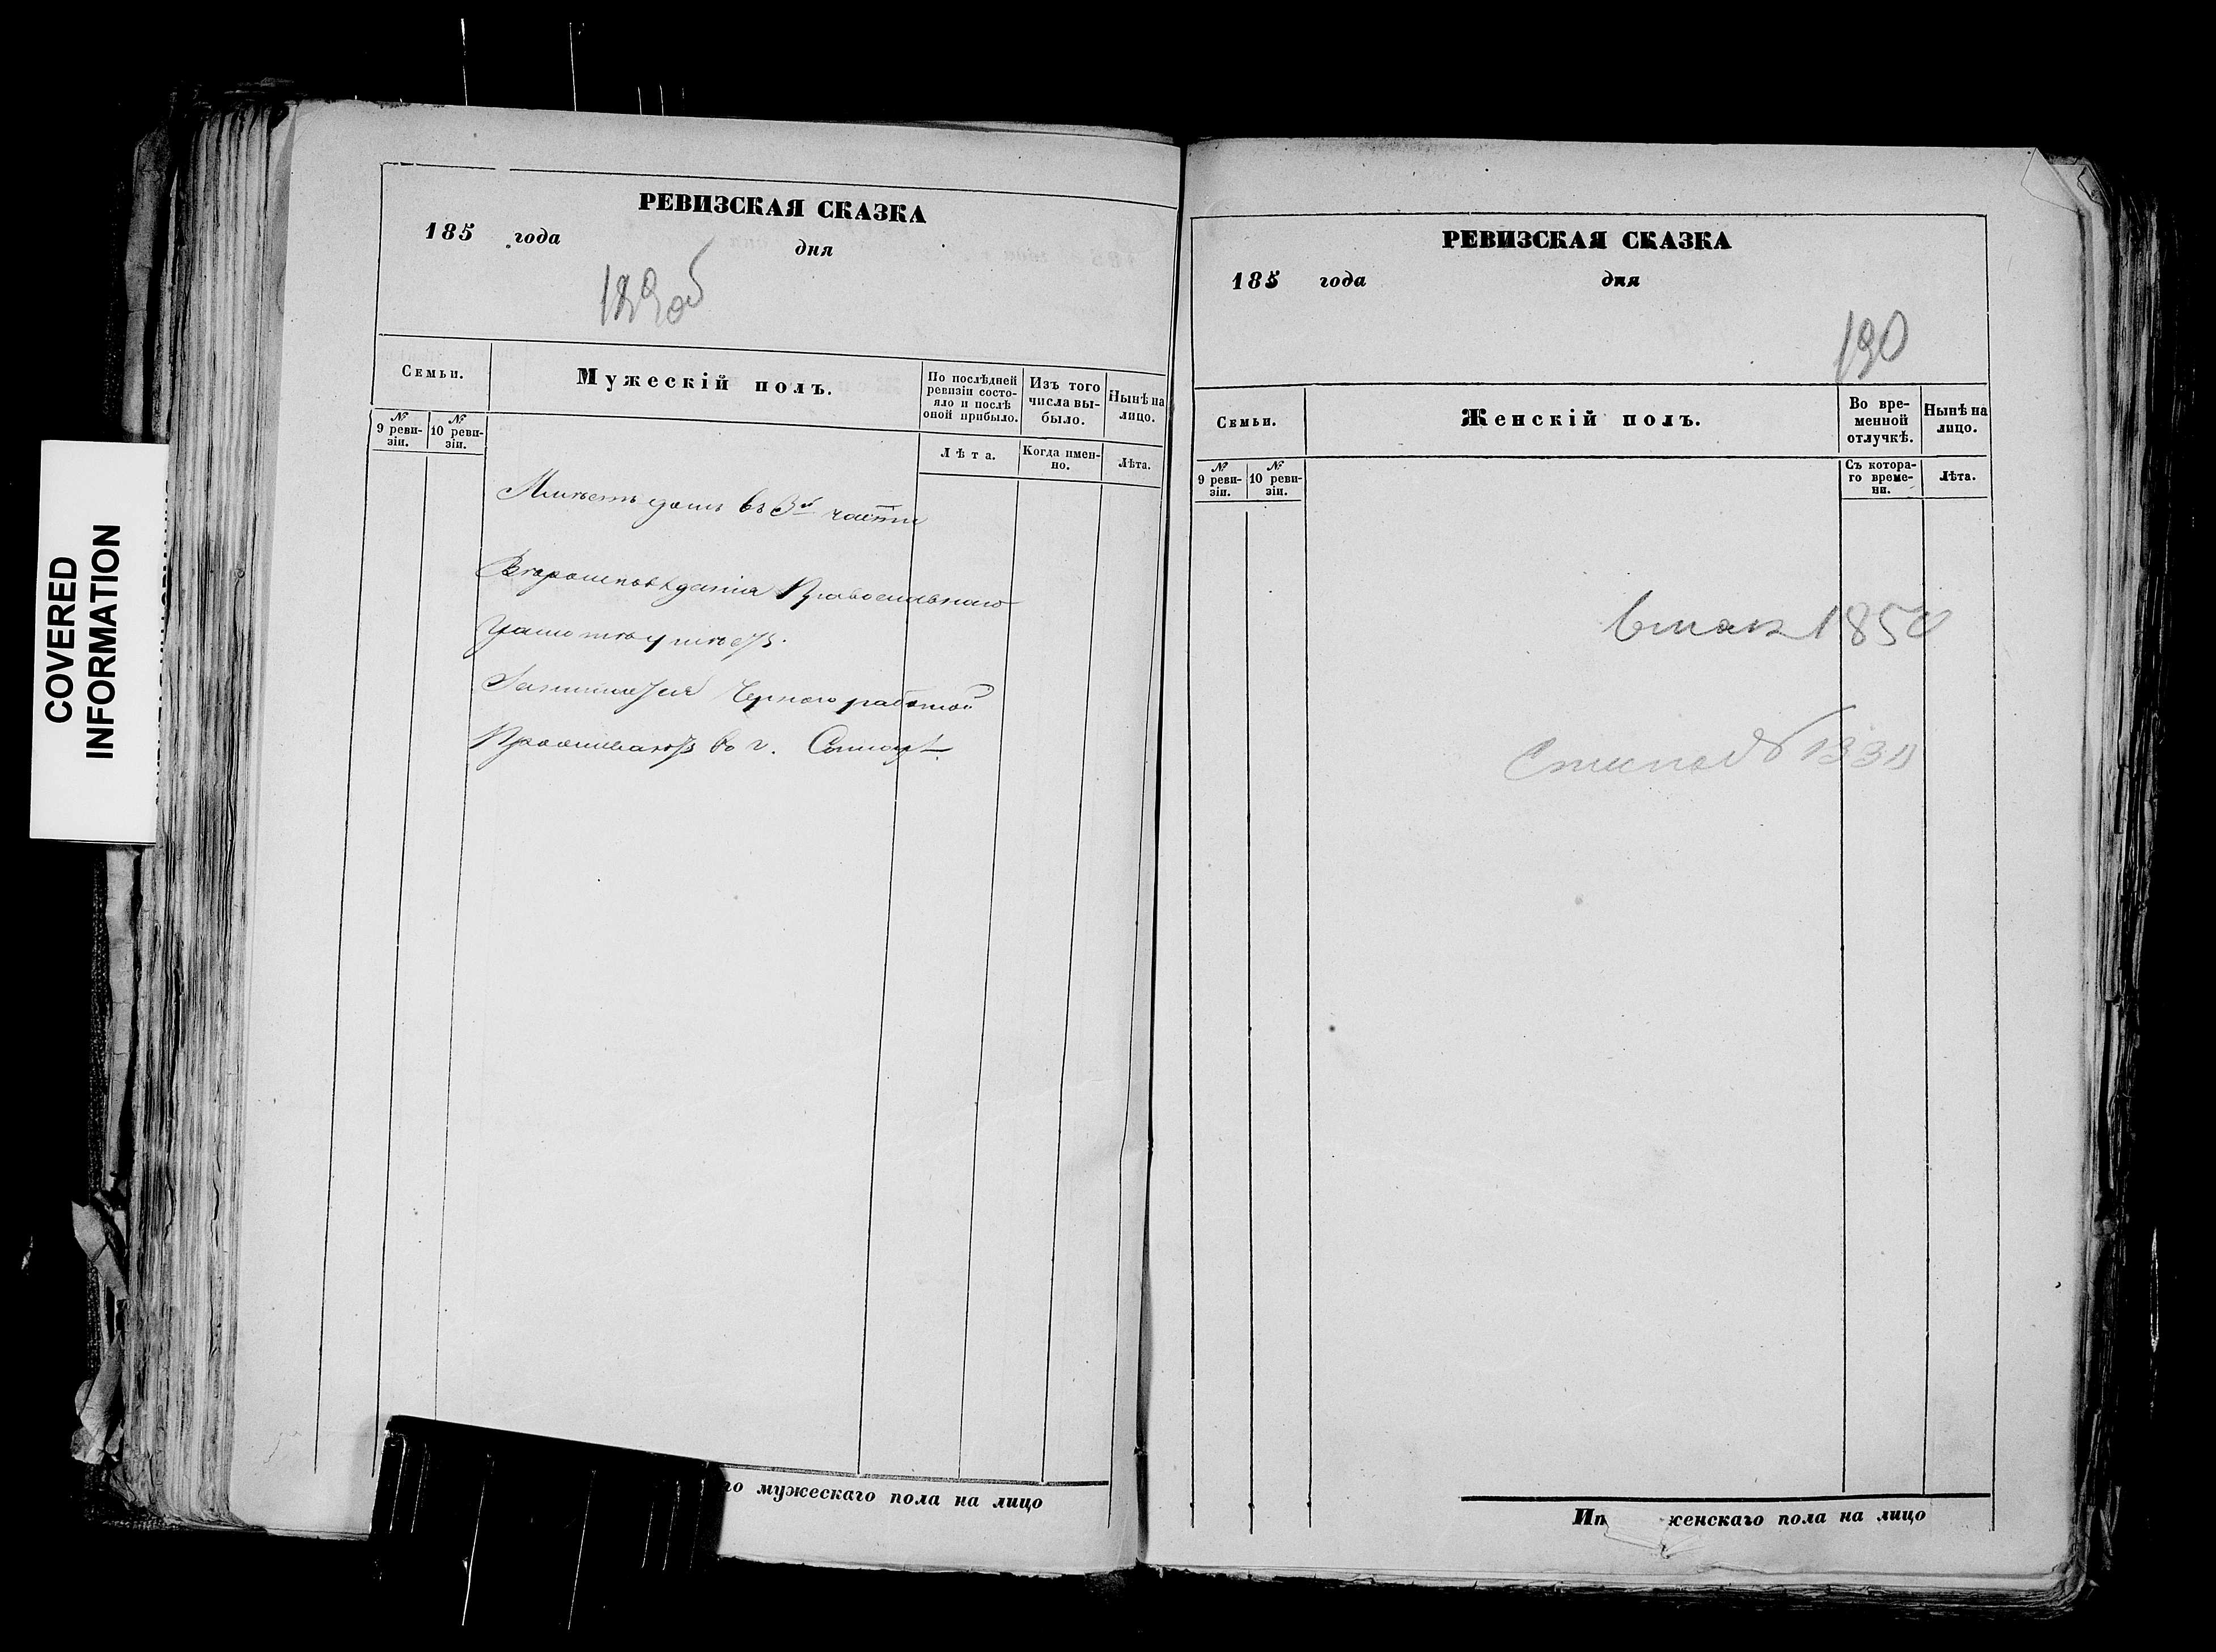 COVERED
INFORMATION
РЕВИЗСКАЯ СКАЗКА
185 года дня
189об
Семьи.
Мужескій полъ.
По послѣдней ревизіи состояло и послѣ оной прибыло.
Изъ того числа выбыло.
Нынѣ на лицо.
№ 9 ревизіи.
№ 10 ревизіи.
Лѣта.
Когда именно.
Лѣта.
Имѣетъ домъ въ 3й части
Вѣроисповѣданія Православнаго
Грамотѣ умѣетъ.
Занимается Черного работой
Проживаютъ въ г.
го мужескаго пола на лицо
РЕВИЗСКАЯ СКАЗКА
185 года дня
190
Семьи.
Женскій полъ.
Во временной отлучкѣ.
Нынѣ на лицо.
№ 9 ревизіи.
№ 10 ревизіи.
Съ котораго времени.
Лѣта.
185
№
Ип женскаго пола на лицо